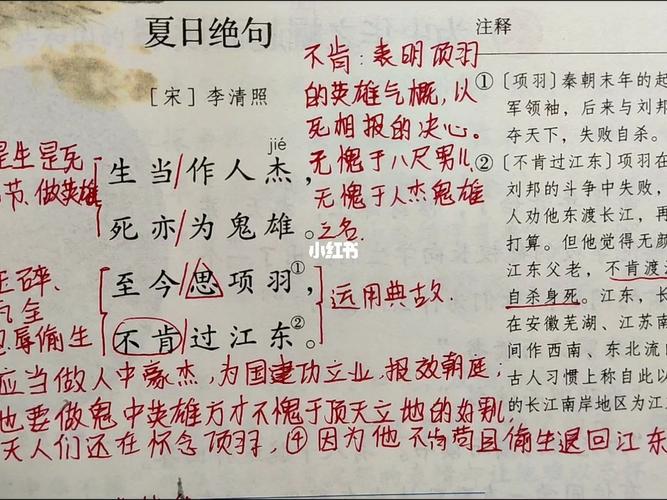 夏日绝句
[宋] 李清照
jié
生当/作人杰,
死亦/为鬼雄。
至今/思项羽①,
不肯/过江东②。
不肯:表明项羽
的英雄气概,以
死相报的决心。
无愧于八尺男儿
无愧于人杰鬼雄
之名.
是生是死
节、做英雄
玉碎、
气全
忍辱偷生
运用典故.
小红书
应当做人中豪杰,为国建功立业,报效朝庭;
也要做鬼中英雄方才不愧于顶天立地的好男儿
天人们还在怀念项羽,④因为他不肯苟且偷生退回江东
注释
①[项羽]秦朝末年的起
军领袖,后来与刘邦
夺天下,失败自杀。
②[不肯过江东]项羽在
刘邦的斗争中失败,
人劝他东渡长江,再
打算。但他觉得无颜
江东父老,不肯渡
自杀身死。江东,长
在安徽芜湖、江苏南
间作西南、东北流向
古人习惯上称自此以
的长江南岸地区为江